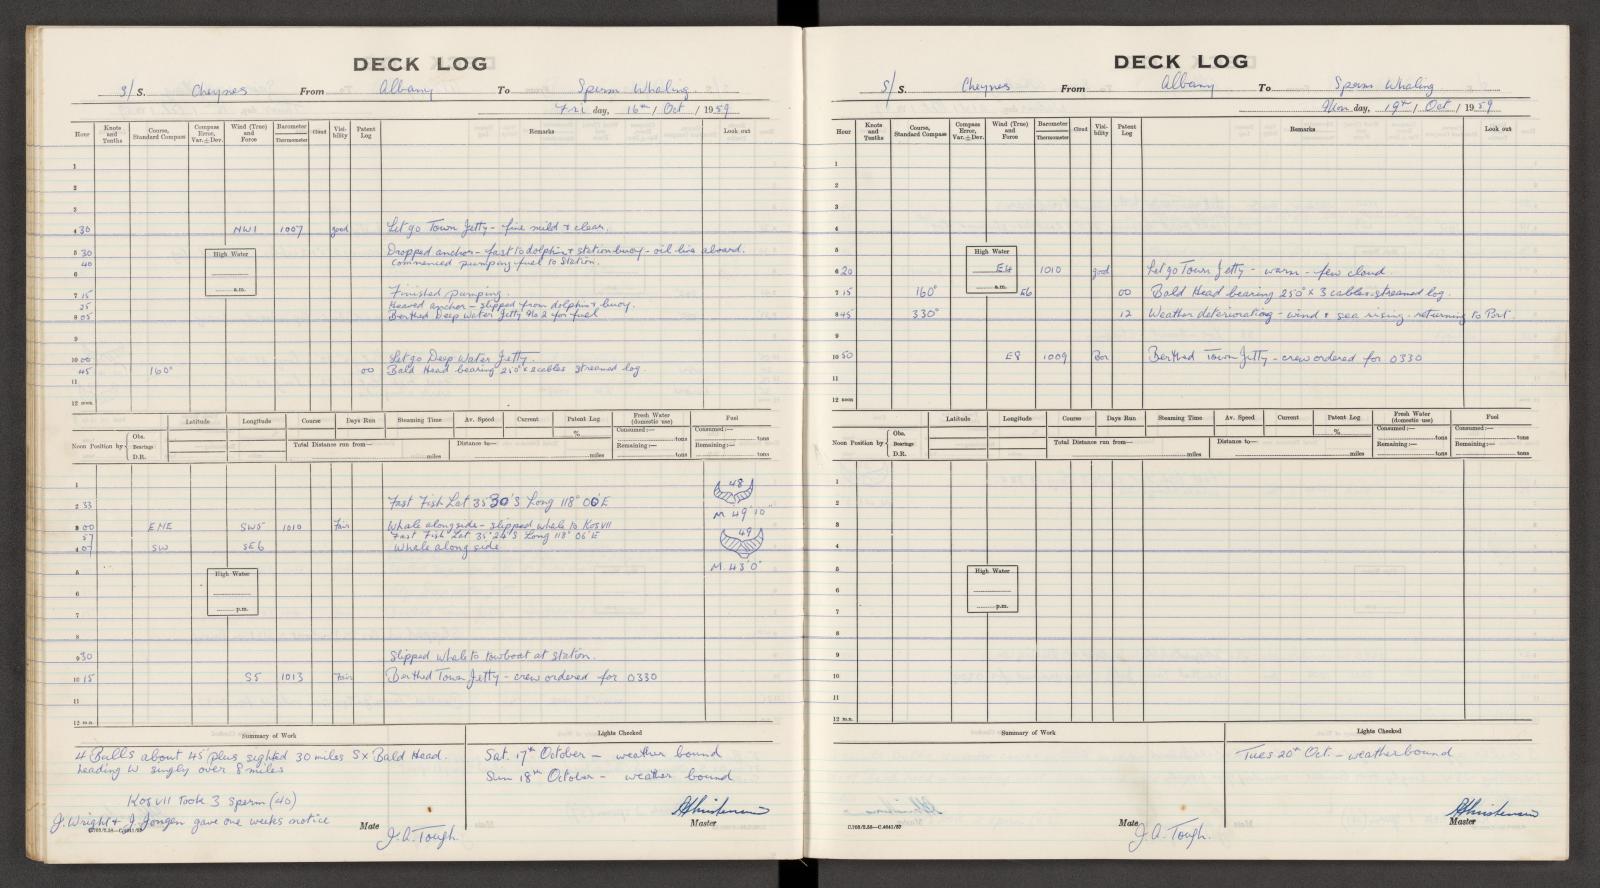 DECK LOG
S/S. Cheynes From Albany To Sperm Whaling.
Fri day, 16th / Oct / 1959
Hour Knots and Tenths Course, Standard Compass Compass Error, Var. ± Dev. Wind (True) and Force Barometer Thermometer Cloud Visibility Patent Log Remarks Look out
1
2
3
4 30 NW1 1007 good Let go Town Jetty - fine mild & clear.
5 30 Dropped anchor - fast to dolphin & station buoy - oil line aboard.
40 Commenced pumping fuel to Station.
6
High Water
a.m.
7 15 Finished pumping.
25 Heaved anchor - slipped from dolphin & buoy.
8 05 Berthed Deep Water Jetty No 2 for fuel
9
10 00 Let go Deep Water Jetty.
45 160° 00 Bald Head bearing 250° x 2 cables streamed log.
11
12 noon
Latitude Longitude Course Days Run Steaming Time Av. Speed Current Patent Log Fresh Water (domestic use) Fuel
% Consumed:— tons Consumed:— tons
Noon Position by Obs. Bearings D.R. Total Distance run from— miles Distance to— miles Remaining:— tons Remaining:— tons
1
2 33 Fast Fish Lat 35 30'S Long 118° 00'E 48
M 49'10"
3 00 ENE SW5 1010 Fair Whale alongside - slipped whale to Kos VII
57 Fast Fish Lat 35°24'S Long 118° 06'E 49
4 07 SW SE6 Whale along side
M. 43'0"
5
6
High Water
p.m.
7
8
9 30 Slipped whale to towboat at station.
10 15 S5 1013 Fair Berthed Town Jetty - crew ordered for 0330
11
12 m.n.
Summary of Work
4 Bulls about 45' plus sighted 30 miles S x Bald Head.
heading W singly over 8 miles
Kos VII took 3 sperm (40)
J. Wright & J. Jongen gave one weeks notice
C.708/2.58—C.4641/57
Lights Checked
Sat. 17th October - weather bound
Sun 18th October - weather bound
Mate J. A. Tough.
Master
DECK LOG
S/S. Cheynes From Albany To Sperm Whaling
Mon day, 19th / Oct / 1959
Hour Knots and Tenths Course, Standard Compass Compass Error, Var. ± Dev. Wind (True) and Force Barometer Thermometer Cloud Visibility Patent Log Remarks Look out
1
2
3
4
5
High Water
a.m.
6 20 E4 1010 good Let go Town Jetty - warm - few cloud
7 15 160° E6 00 Bald Head bearing 250° x 3 cables. streamed log.
8 45 330° 12 Weather deteriorating - wind & sea rising - returning to Port.
9
10 50 E8 1009 Berthed Town Jetty - crew ordered for 0330
11
12 noon
Latitude Longitude Course Days Run Steaming Time Av. Speed Current Patent Log Fresh Water (domestic use) Fuel
% Consumed:— tons Consumed:— tons
Noon Position by Obs. Bearings D.R. Total Distance run from— miles Distance to— miles Remaining:— tons Remaining:— tons
1
2
3
4
5
High Water
p.m.
6
7
8
9
10
11
12 m.n.
Summary of Work
Lights Checked
Tues 20th Oct. - weatherbound
C.708/2.58—C.4641/57
Mate J. A. Tough.
Master